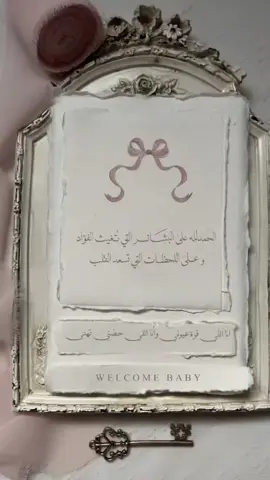 الحمدلله على البشائر التي تُغيث الفؤاد
وعلى اللحظات التي تسعد القلب
انا اللي قرة عيوني وأنا اللي حضني تهنى
WELCOME BABY